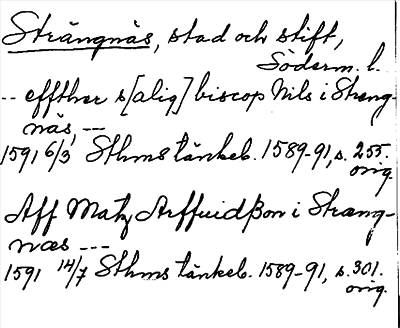 Strängnäs, stad och stift,
Söderm. l.
-- effther s[alig] biscop Nils i Streng-
näs, --
1591 6/3 Sthms tänkeb. 1589-91, s. 255.
orig.
Aff Matz Arffuidßon i Strang-
næs ---
1591 14/7 Sthms tänkeb. 1589-91, s. 301.
orig.